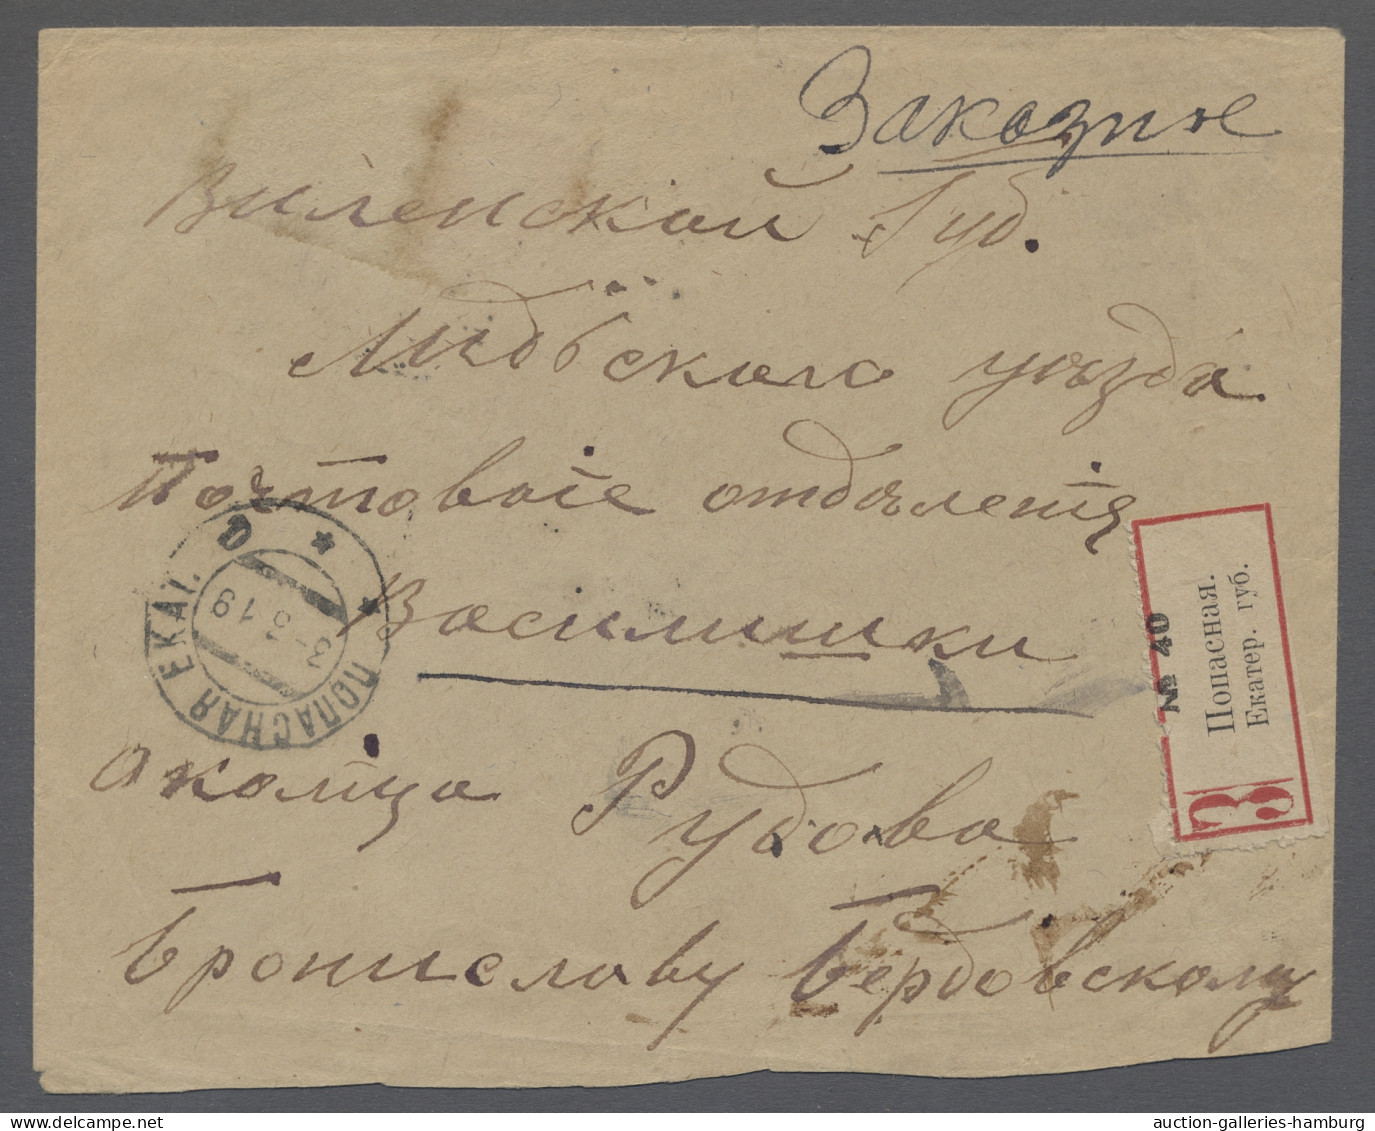 Заказное
Виленской Губ.
Лидского уѣзда
Почтовое отдѣленія
Василишки
околица Рудова
Брониславу Бердовскому
ПОПАСНАЯ ЕКАТ.
3-3 19
№ 40
Попасная.
Екатер. губ.
З
www.delcampe.net
auction-galleries-hamburg